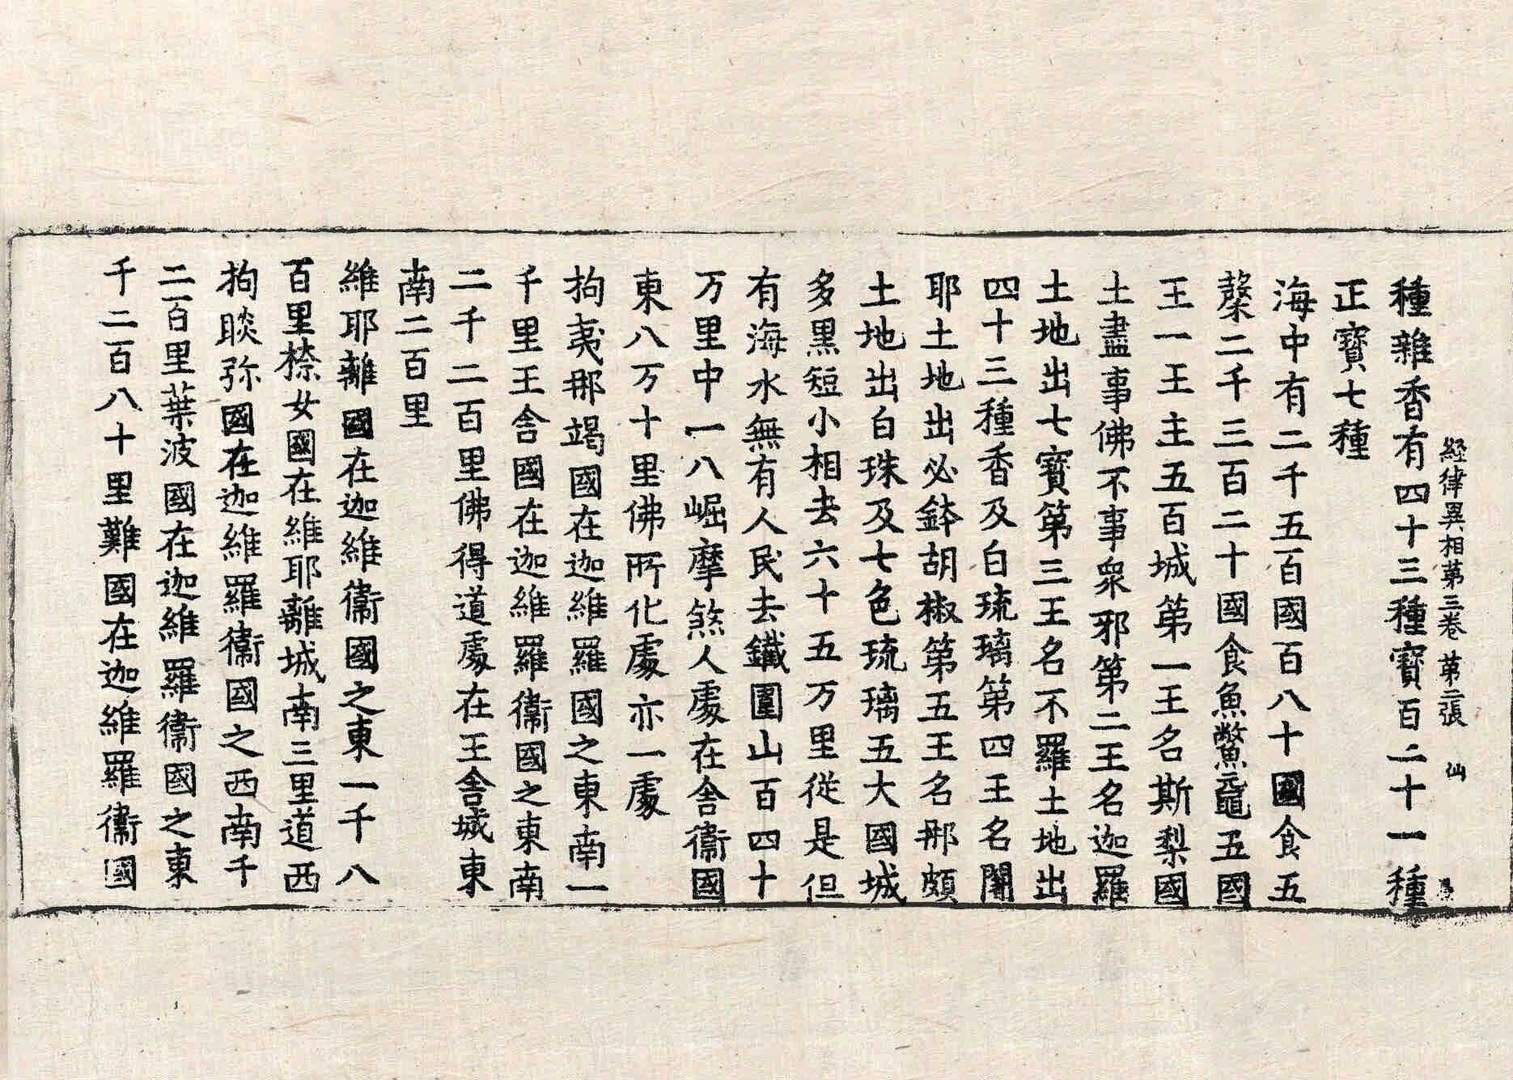 經律異相第三卷 第二張 仙
種雜香有四十三種寶百二十一種
正寶七種
海中有二千五百國百八十國食五
䅽二千三百二十國食魚鱉黿五國
王一王主五百城第一王名斯梨國
土盡事佛不事衆邪第二王名迦羅
土地出七寶第三王名不羅土地出
四十三種香及白琉璃第四王名闍
耶土地出必鉢胡椒第五王名那頗
土地出白珠及七色琉璃五大國城
多黑短小相去六十五万里從是但
有海水無有人民去鐵圍山百四十
万里中一八崛摩煞人處在舍衞國
東八万十里佛所化處亦一處
拘夷那竭國在迦維羅國之東南一
千里王舍國在迦維羅衞國之東南
二千二百里佛得道處在王舍城東
南二百里
維耶離國在迦維衞國之東一千八
百里㮈女國在維耶離城南三里道西
拘睒弥國在迦維羅衞國之西南千
二百里葉波國在迦維羅衞國之東
千二百八十里難國在迦維羅衞國